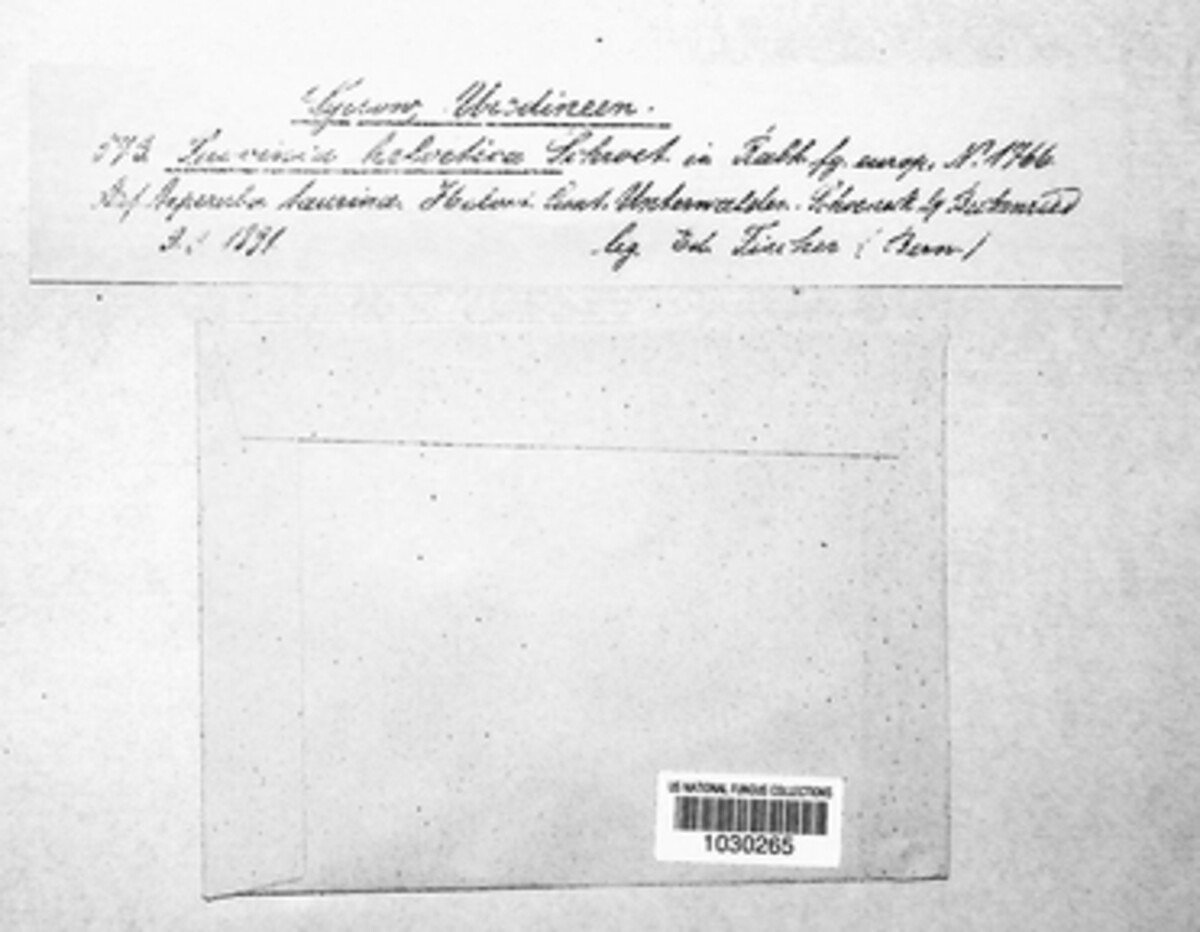 Sydow, Uredineen.
573. Puccinia helvetica Schroet. in Rabh. fg. europ. No. 1766
Auf Asperula taurina. Helvet. Cant. Unterwalden. Schoeneck bg Beckenried
1891 leg. Ed. Fischer (Bern)
US NATIONAL FUNGUS COLLECTIONS
1030265